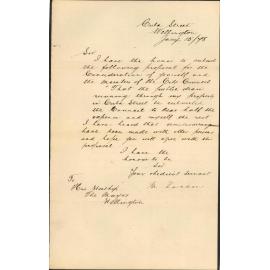 Cuba Street
Wellington
Jany 13/98
Sir
I have the honor to submit
the following proposal for the
Consideration of yourself and
the members of the City Council
"That the public drain
running through my property
in Cuba Street be
the Council to bear half the
expense and myself the rest
I have heard that
have been made with other persons
and hope you will agree with the
proposal
I have the
honor to be
Sir
Your obedient servant
To
His Worship
The Mayor
Wellington